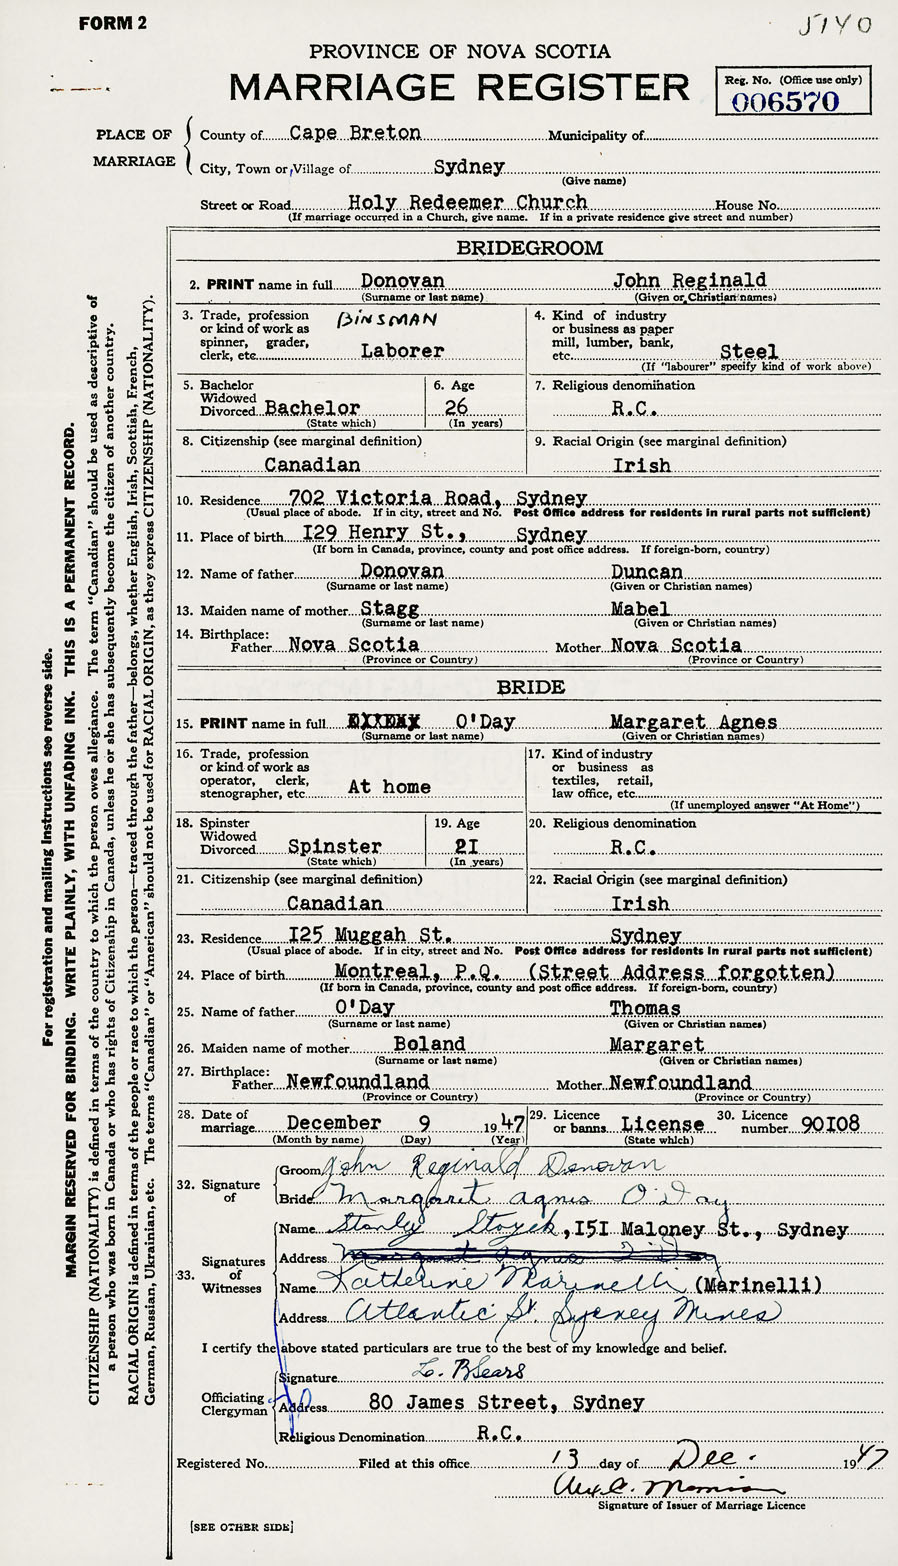 FORM 2
5740
PROVINCE OF NOVA SCOTIA
MARRIAGE REGISTER
Reg. No. (Office use only)
006570
PLACE OF MARRIAGE
County of Cape Breton Municipality of
City, Town or Village of Sydney
(Give name)
Street or Road Holy Redeemer Church House No.
(If marriage occurred in a Church, give name. If in a private residence give street and number)
BRIDEGROOM
2. PRINT name in full Donovan John Reginald
(Surname or last name) (Given or Christian names)
3. Trade, profession or kind of work as spinner, grader, clerk, etc. BINSMAN Laborer
4. Kind of industry or business as paper mill, lumber, bank, etc. Steel
(If "labourer" specify kind of work above)
5. Bachelor Widowed Divorced Bachelor
(State which)
6. Age 26
(In years)
7. Religious denomination
R.C.
8. Citizenship (see marginal definition)
Canadian
9. Racial Origin (see marginal definition)
Irish
10. Residence 702 Victoria Road, Sydney
(Usual place of abode. If in city, street and No. Post Office address for residents in rural parts not sufficient)
11. Place of birth I29 Henry St., Sydney
(If born in Canada, province, county and post office address. If foreign-born, country)
12. Name of father Donovan Duncan
(Surname or last name) (Given or Christian names)
13. Maiden name of mother Stagg Mabel
(Surname or last name) (Given or Christian names)
14. Birthplace:
Father Nova Scotia Mother Nova Scotia
(Province or Country) (Province or Country)
BRIDE
15. PRINT name in full O'Day Margaret Agnes
(Surname or last name) (Given or Christian names)
16. Trade, profession or kind of work as operator, clerk, stenographer, etc. At home
17. Kind of industry or business as textiles, retail, law office, etc.
(If unemployed answer "At Home")
18. Spinster Widowed Divorced Spinster
(State which)
19. Age 2I
(In years)
20. Religious denomination
R.C.
21. Citizenship (see marginal definition)
Canadian
22. Racial Origin (see marginal definition)
Irish
23. Residence I25 Muggah St. Sydney
(Usual place of abode. If in city, street and No. Post Office address for residents in rural parts not sufficient)
24. Place of birth Montreal, P.Q. (Street Address forgotten)
(If born in Canada, province, county and post office address. If foreign-born, country)
25. Name of father O'Day Thomas
(Surname or last name) (Given or Christian names)
26. Maiden name of mother Boland Margaret
(Surname or last name) (Given or Christian names)
27. Birthplace:
Father Newfoundland Mother Newfoundland
(Province or Country) (Province or Country)
28. Date of marriage December 9 1947
(Month by name) (Day) (Year)
29. Licence or banns License
(State which)
30. Licence number 90I08
32. Signature of
Groom John Reginald Donovan
Bride Margaret Agnes O'Day
33. Signatures of Witnesses
Name Stanly ,I5I Maloney St., Sydney
Address Margaret Agnes O'Day
Name Katherine Marinelli (Marinelli)
Address Atlantic St. Sydney Mines
I certify the above stated particulars are true to the best of my knowledge and belief.
Officiating Clergyman
Signature
Address 80 James Street, Sydney
Religious Denomination R.C.
Registered No. Filed at this office 13 day of Dec. 1947
Signature of Issuer of Marriage Licence
[SEE OTHER SIDE]
For registration and mailing instructions see reverse side.
MARGIN RESERVED FOR BINDING. WRITE PLAINLY, WITH UNFADING INK. THIS IS A PERMANENT RECORD.
CITIZENSHIP (NATIONALITY) is defined in terms of the country to which the person owes allegiance. The term "Canadian" should be used as descriptive of
a person who was born in Canada or who has rights of Citizenship in Canada, unless he or she has subsequently become the citizen of another country.
RACIAL ORIGIN is defined in terms of the people or race to which the person—traced through the father—belongs, whether English, Irish, Scottish, French,
German, Russian, Ukrainian, etc. The terms "Canadian" or "American" should not be used for RACIAL ORIGIN, as they express CITIZENSHIP (NATIONALITY).